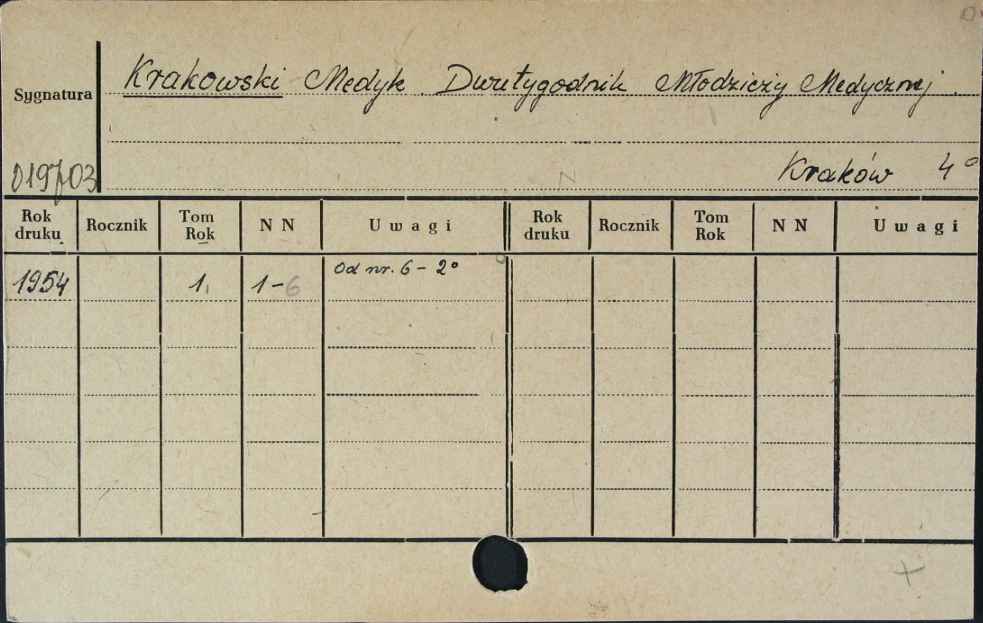 Krakowski Medyk. Dwutygodnik Młodzieży Medycznej.
Sygnatura
019703
Kraków 4°
Rok druku Rocznik Tom Rok N N Uwagi Rok druku Rocznik Tom Rok N N Uwagi
1954 1. 1-6 Od nr. 6 - 2°